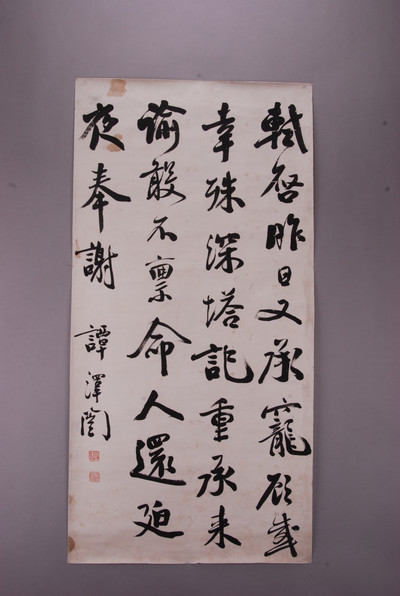 軾啓昨日又承寵顧感
幸殊深塔記重承来
諭敢不稟命人還迫
夜奉謝
譚澤闓